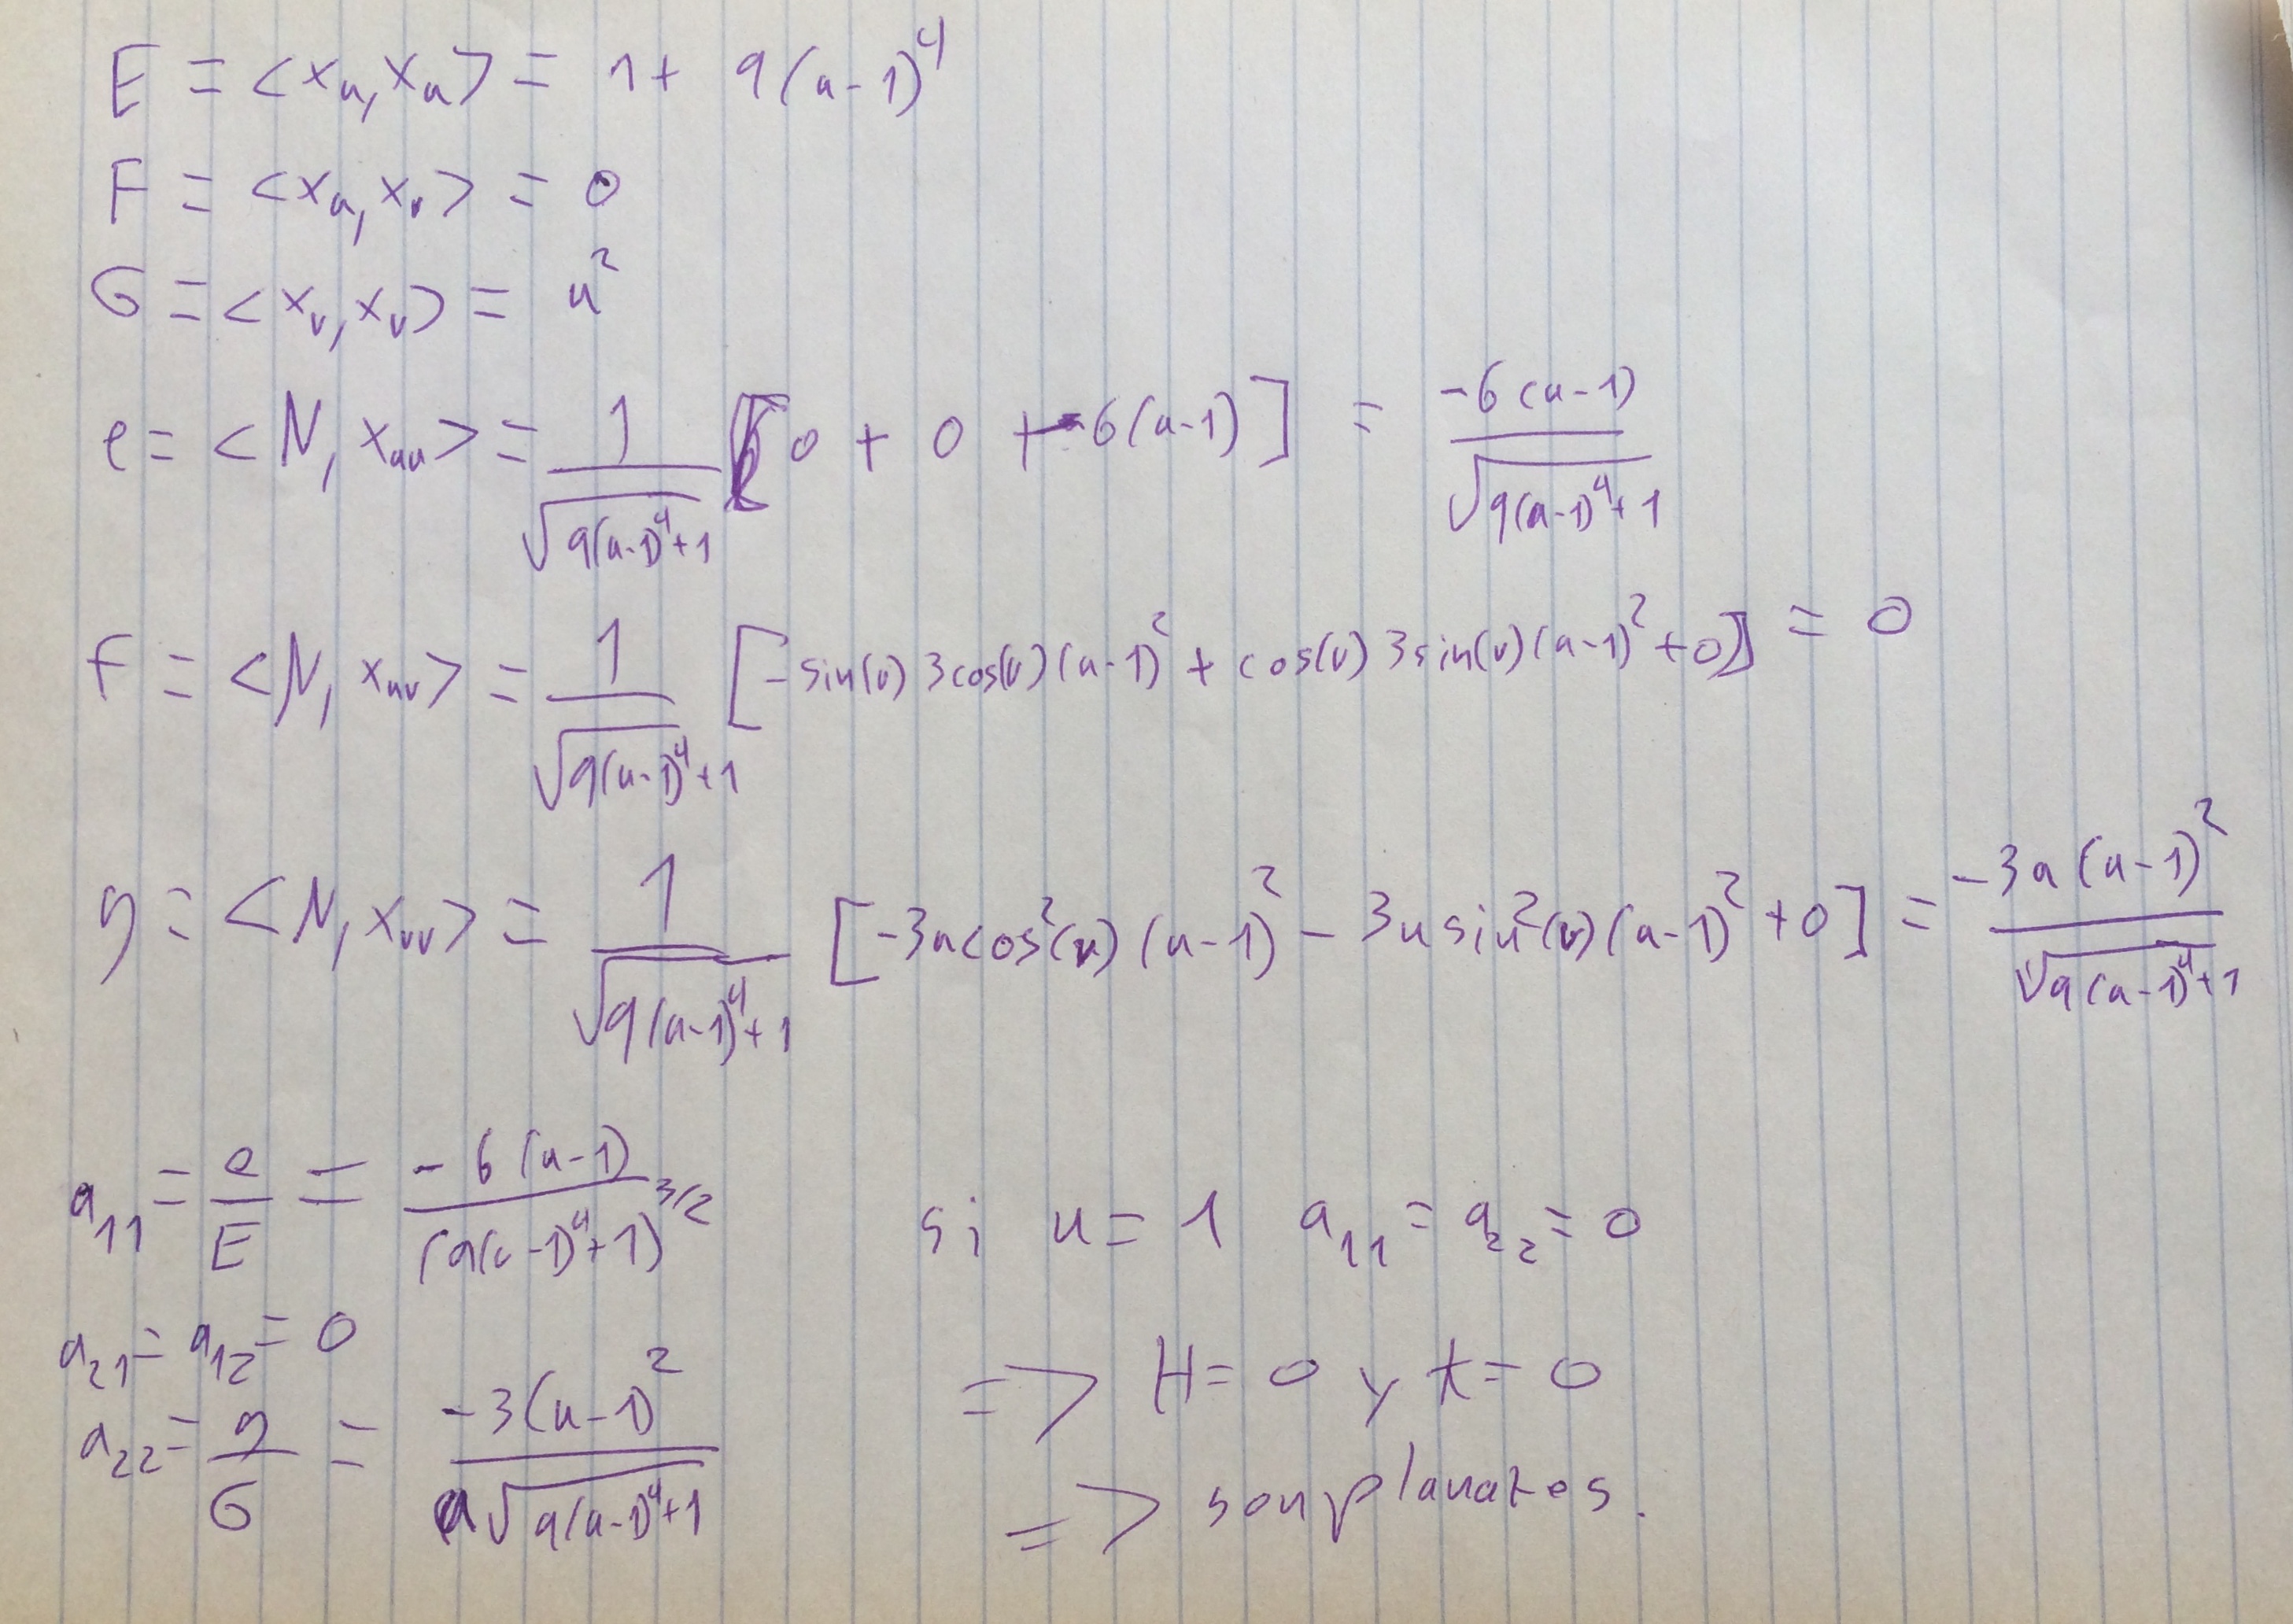 E = <x_u, x_u> = 1 + 9(u-1)^4
F = <x_u, x_v> = 0
G = <x_v, x_v> = u^2
e = <N, x_uu> = 1/√(9(u-1)^4+1) [0 + 0 + -6(u-1)] = -6(u-1)/√(9(u-1)^4+1)
f = <N, x_uv> = 1/√(9(u-1)^4+1) [-sin(v) 3cos(v) (u-1)^2 + cos(v) 3sin(v) (u-1)^2 + 0] = 0
g = <N, x_vv> = 1/√(9(u-1)^4+1) [-3u cos^2(v) (u-1)^2 - 3u sin^2(v) (u-1)^2 + 0] = -3u(u-1)^2/√(9(u-1)^4+1)
a_11 = e/E = -6(u-1)/(9(u-1)^4+1)^3/2
si u = 1 a_11 = a_22 = 0
a_21 = a_12 = 0
=> H = 0 y k = 0
a_22 = g/G = -3(u-1)^2/u√(9(u-1)^4+1)
=> son planares.